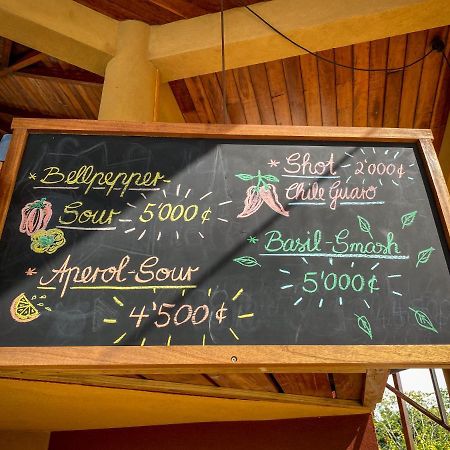 Bellpepper-
Sour 5'000 ¢
Aperol-Sour
4'500 ¢
Shot 2'000 ¢
Chile Guaro
Basil-Smash
5'000 ¢